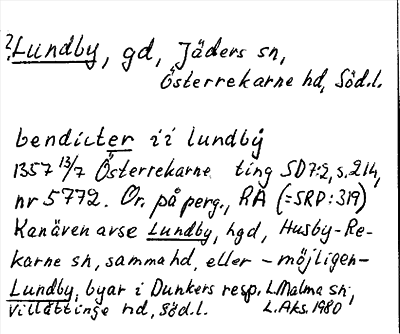 ?Lundby, gd, Jäders sn,
Österrekarne hd, Söd.l.
bendicter ii lundby
1357 13/7 Österrekarne ting SD7:2, s. 214,
nr 5772. Or. på perg., RA (=SRP:319)
Kan även avse Lundby, hgd, Husby-Re-
karne sn, samma hd, eller - möjligen -
Lundby, byar i Dunkers resp. L. Malma sn,
Villåttinge hd, Söd.l. L. Aks. 1980